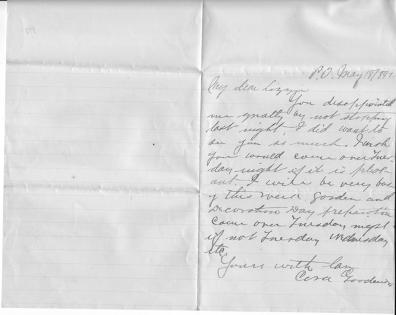 P.O. May 18/88
My dear Lizzye
You disappointed
me greatly by not stopping
last night. I did want to
see you so much. I wish
you would come over Tues-
day night if it is pleas-
ant. I will be very bus-
y this week garden and
Decoration Day preparation
Come over Tuesday night
if not Tuesday Wednesday
etc
Yours with love
Cora